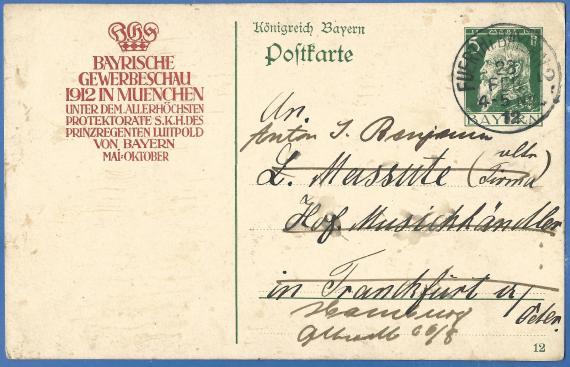 BGS
BAYRISCHE
GEWERBESCHAU
1912 IN MUENCHEN
UNTER DEM ALLERHÖCHSTEN
PROTEKTORATE S.K.H.DES
PRINZREGENTEN LUITPOLD
VON BAYERN
MAI-OKTOBER
Königreich Bayern
Postkarte
BAYERN
12
An
Anton J. Benjamin
L. Massute (Firma
Hof. Musickhändler
in Frankfurt a/
Oder.
Hamburg
12